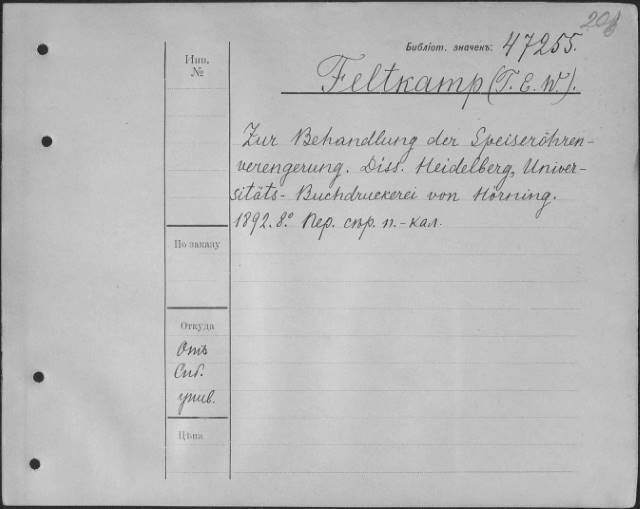 Библіот. значекъ: 47255.
Инв. №
Feltkamp (T. E. W.).
Zur Behandlung der Speiseröhren-
verengerung. Diss. Heidelberg, Univer-
sitäts-Buchdruckerei von Hörning.
1892. 8.° Пер. сѣр. п.-кал.
По заказу
Откуда
Отъ
Сиб.
унив.
Цѣна